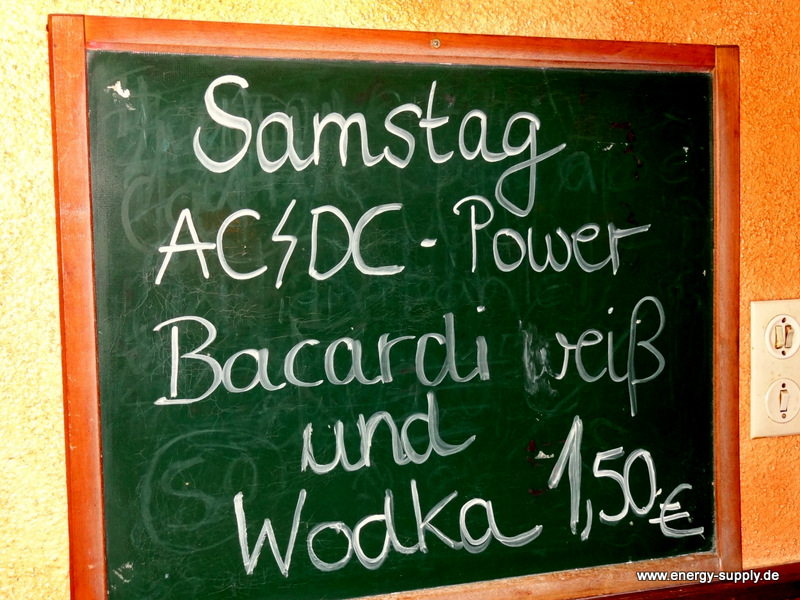 Samstag
AC⚡DC - Power
Bacardi weiß
und
Wodka 1,50 €
www.energy-supply.de